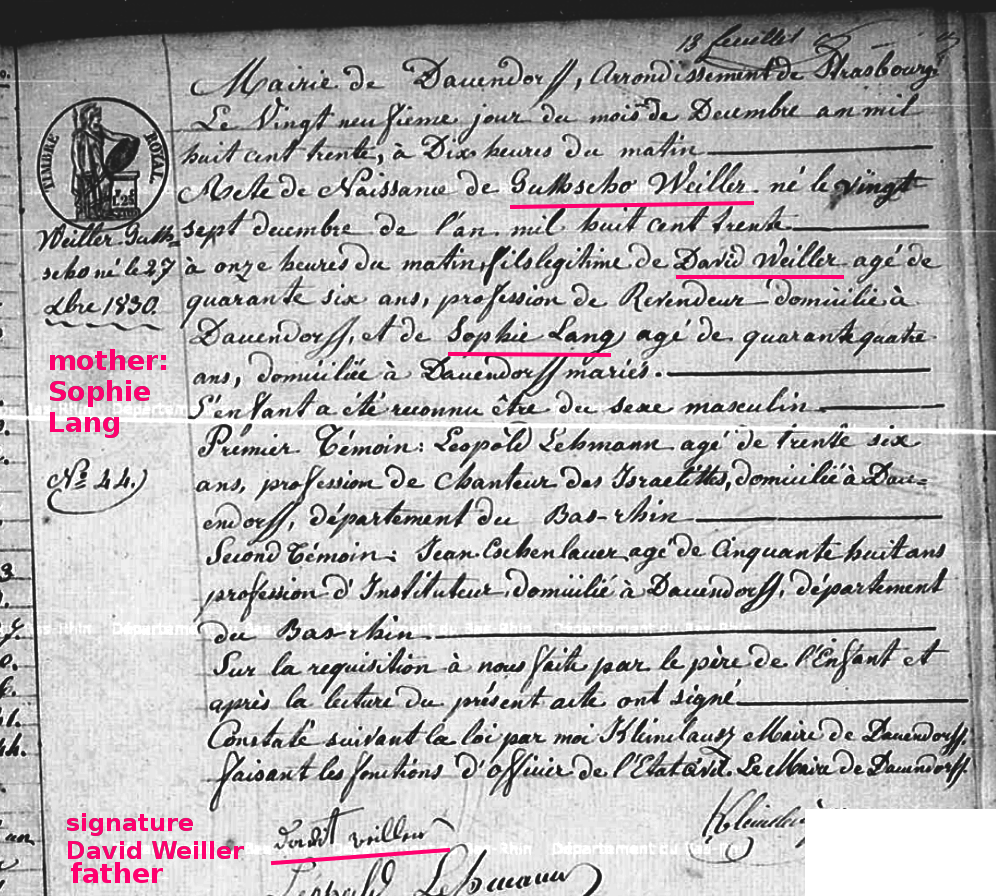 13 feuillet
Mairie de Dauendorff, Arrondissement de Strasbourg
Le Vingt neufieme jour du mois de Decembre an mil
huit cent trente, à Dix heures du matin
Acte de Naissance de Guthscho Weiller né le vingt
sept decembre de l'an mil huit cent trente
à onze heures du matin, fils legitime de David Weiller agé de
quarante six ans, profession de Revendeur domicilié à
Dauendorff, et de Sophie Lang agé de quarante quatre
ans, domiciliée à Dauendorff mariés.
L'enfant a été reconnu être du sexe masculin
Prémier Témoin: Leopold Lehmann agé de trente six
ans, profession de Chanteur des Israelittes, domicilié à Dau=
endorff, département du Bas-rhin
Second Témoin: Jean Eschenlauer agé de Cinquante huit ans
profession d'Instituteur, domicilié à Dauendorff, département
du Bas-rhin
Sur la requisition à nous faite par le père de l'Enfant et
après la lecture du présent acte ont signé
Constaté suivant la loi par moi Kleinclausz Maire de Dauendorff.
faisant les fonctions d'officier de l'Etat civil. Le Maire de Dauendorff.
TIMBRE ROYAL
1.25
Weiller Guth=
scho né le 27
Xbre 1830.
mother:
Sophie
Lang
Nº 44.
signature
David Weiller
father
David weiller
Leopold Lehmann
Département du Bas-Rhin